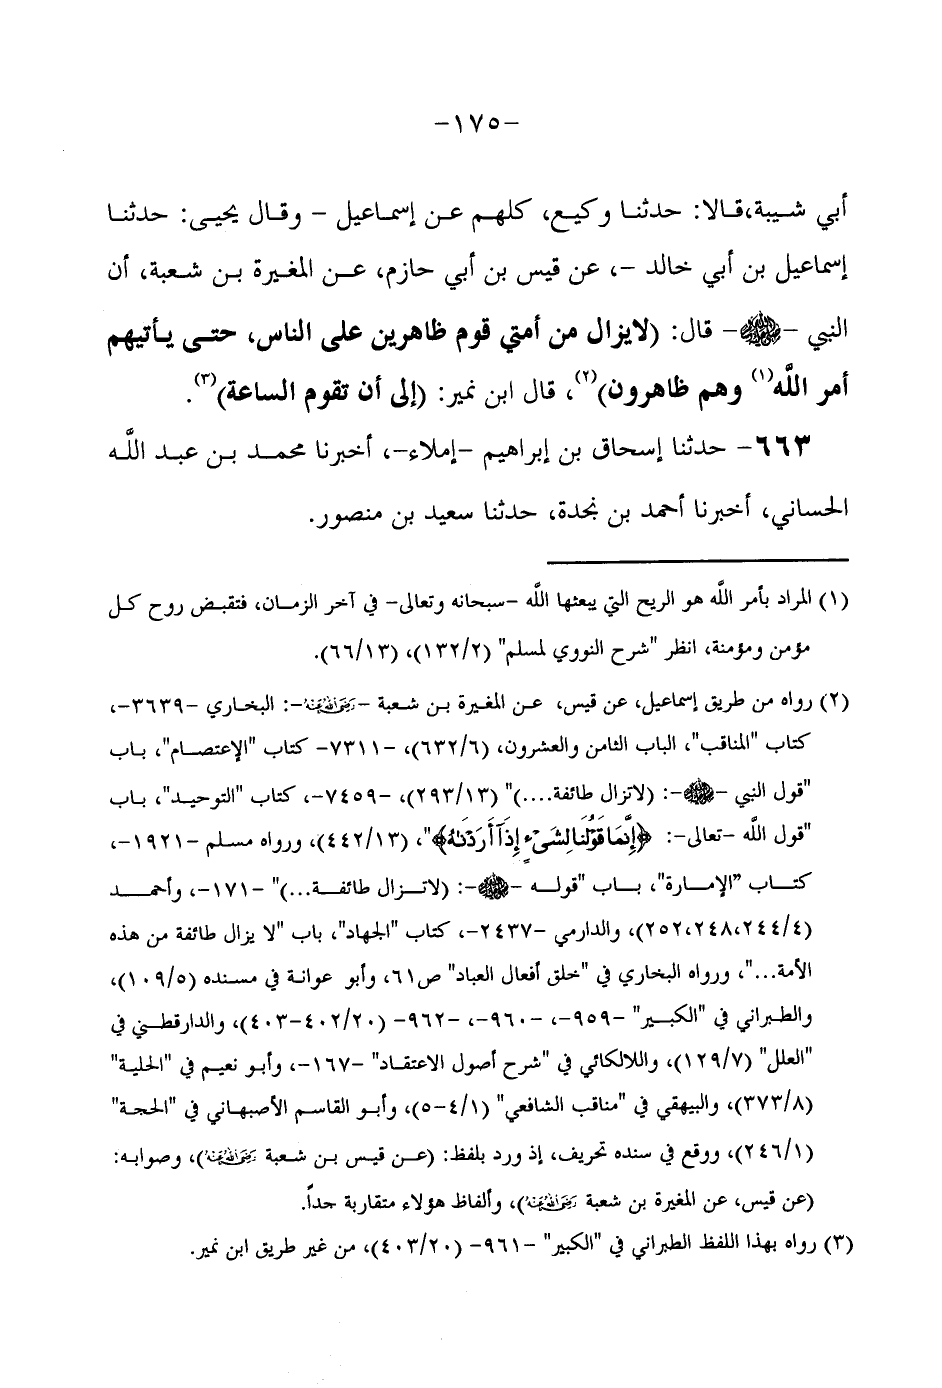 -١٧٥-
أبي شيبة،قالا: حدثنا وكيع، كلهم عن إسماعيل - وقال يحيى: حدثنا
إسماعيل بن أبي خالد -، عن قيس بن أبي حازم، عن المغيرة بن شعبة، أن
النبي -ﷺ- قال: (لايزال من أمتي قوم ظاهرين على الناس، حتى يأتيهم
أمر الله(١) وهم ظاهرون)(٢)، قال ابن نمير: (إلى أن تقوم الساعة)(٣).
٦٦٣- حدثنا إسحاق بن إبراهيم -إملاء-، أخبرنا محمد بن عبد الله
الحساني، أخبرنا أحمد بن نجدة، حدثنا سعيد بن منصور.
(١) المراد بأمر الله هو الريح التي يبعثها الله -سبحانه وتعالى- في آخر الزمان، فتقبض روح كل
مؤمن ومؤمنة، انظر "شرح النووي لمسلم" (١٣٢/٢)، (٦٦/١٣).
(٢) رواه من طريق إسماعيل، عن قيس، عن المغيرة بن شعبة -رضي الله عنه-: البخاري -٣٦٣٩-،
كتاب "المناقب"، الباب الثامن والعشرون، (٦٣٢/٦)، -٧٣١١- كتاب "الإعتصام"، باب
"قول النبي -ﷺ-: (لاتزال طائفة....)" (٢٩٣/١٣)، -٧٤٥٩-، كتاب "التوحيد"، باب
"قول الله -تعالى-: ﴿إِنَّمَا قَوْلُنَا لِشَيْءٍ إِذَا أَرَدْنَاهُ﴾"، (٤٤٢/١٣)، ورواه مسلم -١٩٢١-،
كتاب "الإمارة"، باب "قوله -ﷺ-: (لاتزال طائفة...)" -١٧١-، وأحمد
(٢٥٢،٢٤٨،٢٤٤/٤)، والدارمي -٢٤٣٧-، كتاب "الجهاد"، باب "لا يزال طائفة من هذه
الأمة..."، ورواه البخاري في "خلق أفعال العباد" ص٦١، وأبو عوانة في مسنده (١٠٩/٥)،
والطبراني في "الكبير" -٩٥٩-، -٩٦٠-، -٩٦٢- (٤٠٢/٢٠-٤٠٣)، والدارقطني في
"العلل" (١٢٩/٧)، واللالكائي في "شرح أصول الاعتقاد" -١٦٧-، وأبو نعيم في "الحلية"
(٣٧٣/٨)، والبيهقي في "مناقب الشافعي" (٤/١-٥)، وأبو القاسم الأصبهاني في "الحجة"
(٢٤٦/١)، ووقع في سنده تحريف، إذ ورد بلفظ: (عن قيس بن شعبة رضي الله عنه)، وصوابه:
(عن قيس، عن المغيرة بن شعبة رضي الله عنه)، وألفاظ هؤلاء متقاربة جداً.
(٣) رواه بهذا اللفظ الطبراني في "الكبير" -٩٦١- (٤٠٣/٢٠)، من غير طريق ابن نمير.